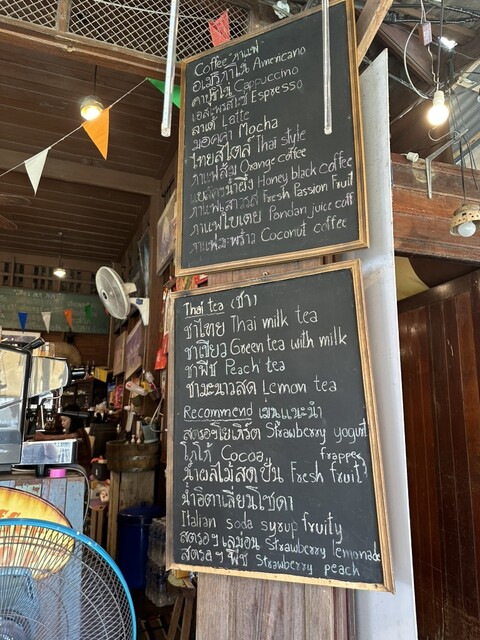 Coffee กาแฟ
อเมริกาโน่ Americano
คาปูชิโน่ Cappuccino
เอสเพรสโซ่ Espresso
ลาเต้ Latte
มอคค่า Mocha
ไทยสไตล์ Thai style
กาแฟส้ม Orange coffee
แบล็คน้ำผึ้ง Honey black coffee
กาแฟเสาวรส Fresh Passion Fruit
กาแฟใบเตย Pandan juice coff
กาแฟมะพร้าว Coconut coffee
Thai tea (ชา)
ชาไทย Thai milk tea
ชาเขียว Green tea with milk
ชาพีช Peach tea
ชามะนาวสด Lemon tea
Recommend เมนูแนะนำ
สตรอฯโยเกิร์ต Strawberry yogurt
โกโก้ Cocoa frappe
น้ำผลไม้สดปั่น Fresh fruit
น้ำอิตาเลี่ยนโซดา
Italian soda syrup fruity
สตรอฯเลม่อน Strawberry lemonade
สตรอฯพีช Strawberry peach